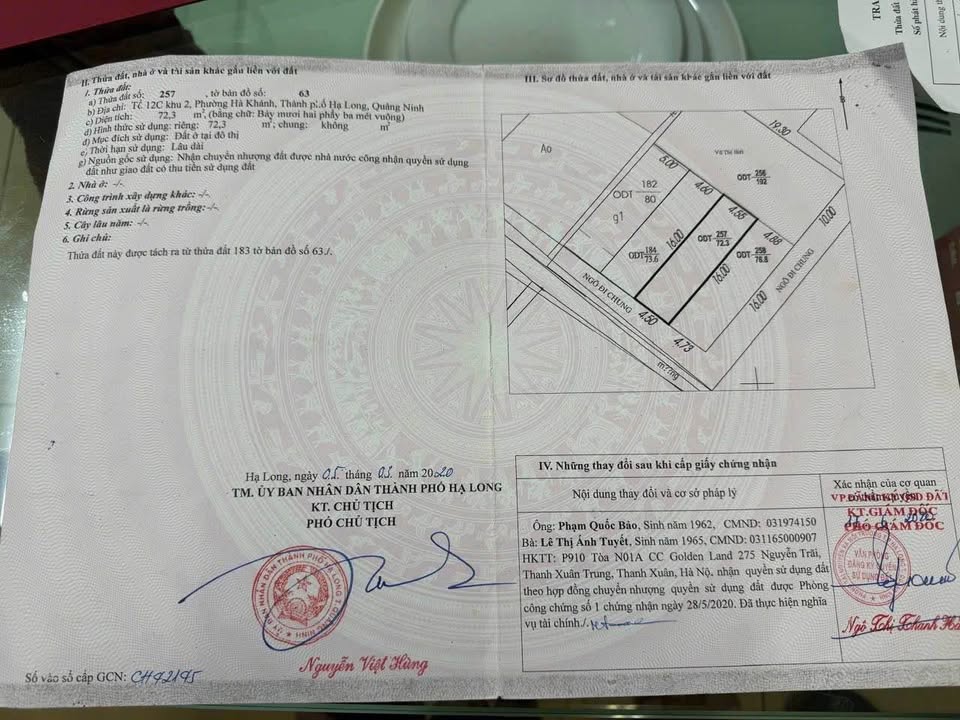 II. Thửa đất, nhà ở và tài sản khác gắn liền với đất
1. Thửa đất:
a) Thửa đất số: 257 , tờ bản đồ số: 63
b) Địa chỉ: Tổ 12C khu 2, Phường Hà Khánh, Thành phố Hạ Long, Quảng Ninh
c) Diện tích: 72,3 m², (bằng chữ: Bảy mươi hai phẩy ba mét vuông)
d) Hình thức sử dụng: riêng: 72,3 m², chung: không m²
đ) Mục đích sử dụng: Đất ở tại đô thị
e) Thời hạn sử dụng: Lâu dài
g) Nguồn gốc sử dụng: Nhận chuyển nhượng đất được nhà nước công nhận quyền sử dụng
đất như giao đất có thu tiền sử dụng đất
2. Nhà ở: -/-
3. Công trình xây dựng khác: -/-
4. Rừng sản xuất là rừng trồng: -/-
5. Cây lâu năm: -/-
6. Ghi chú:
Thửa đất này được tách ra từ thửa đất 183 tờ bản đồ số 63./.
Hạ Long, ngày 05 tháng 03 năm 2020
TM. ỦY BAN NHÂN DÂN THÀNH PHỐ HẠ LONG
KT. CHỦ TỊCH
PHÓ CHỦ TỊCH
Nguyễn Việt Hùng
Số vào sổ cấp GCN: CH42195
III. Sơ đồ thửa đất, nhà ở và tài sản khác gắn liền với đất
B
19.30
Ao
ODT 256
192
5.00
ODT 182
80
g1
4.60
4.55
4.68
10.00
ODT 184
73.6
16.00
ODT 257
72.3
ODT 258
76.8
16.00
16.00
NGÕ ĐI CHUNG
NGÕ ĐI CHUNG
4.50
4.73
IV. Những thay đổi sau khi cấp giấy chứng nhận
Nội dung thay đổi và cơ sở pháp lý
Xác nhận của cơ quan
có thẩm quyền
KT.GIÁM ĐỐC
PHÓ GIÁM ĐỐC
Ông: Phạm Quốc Bảo, Sinh năm 1962, CMND: 031974150
Bà: Lê Thị Ánh Tuyết, Sinh năm 1965, CMND: 031165000907
HKTT: P910 Tòa N01A CC Golden Land 275 Nguyễn Trãi,
Thanh Xuân Trung, Thanh Xuân, Hà Nộ. nhận quyền sử dụng đất
theo hợp đồng chuyển nhượng quyền sử dụng đất được Phòng
công chứng số 1 chứng nhận ngày 28/5/2020. Đã thực hiện nghĩa
vụ tài chính./.
Ngô Thị Thanh